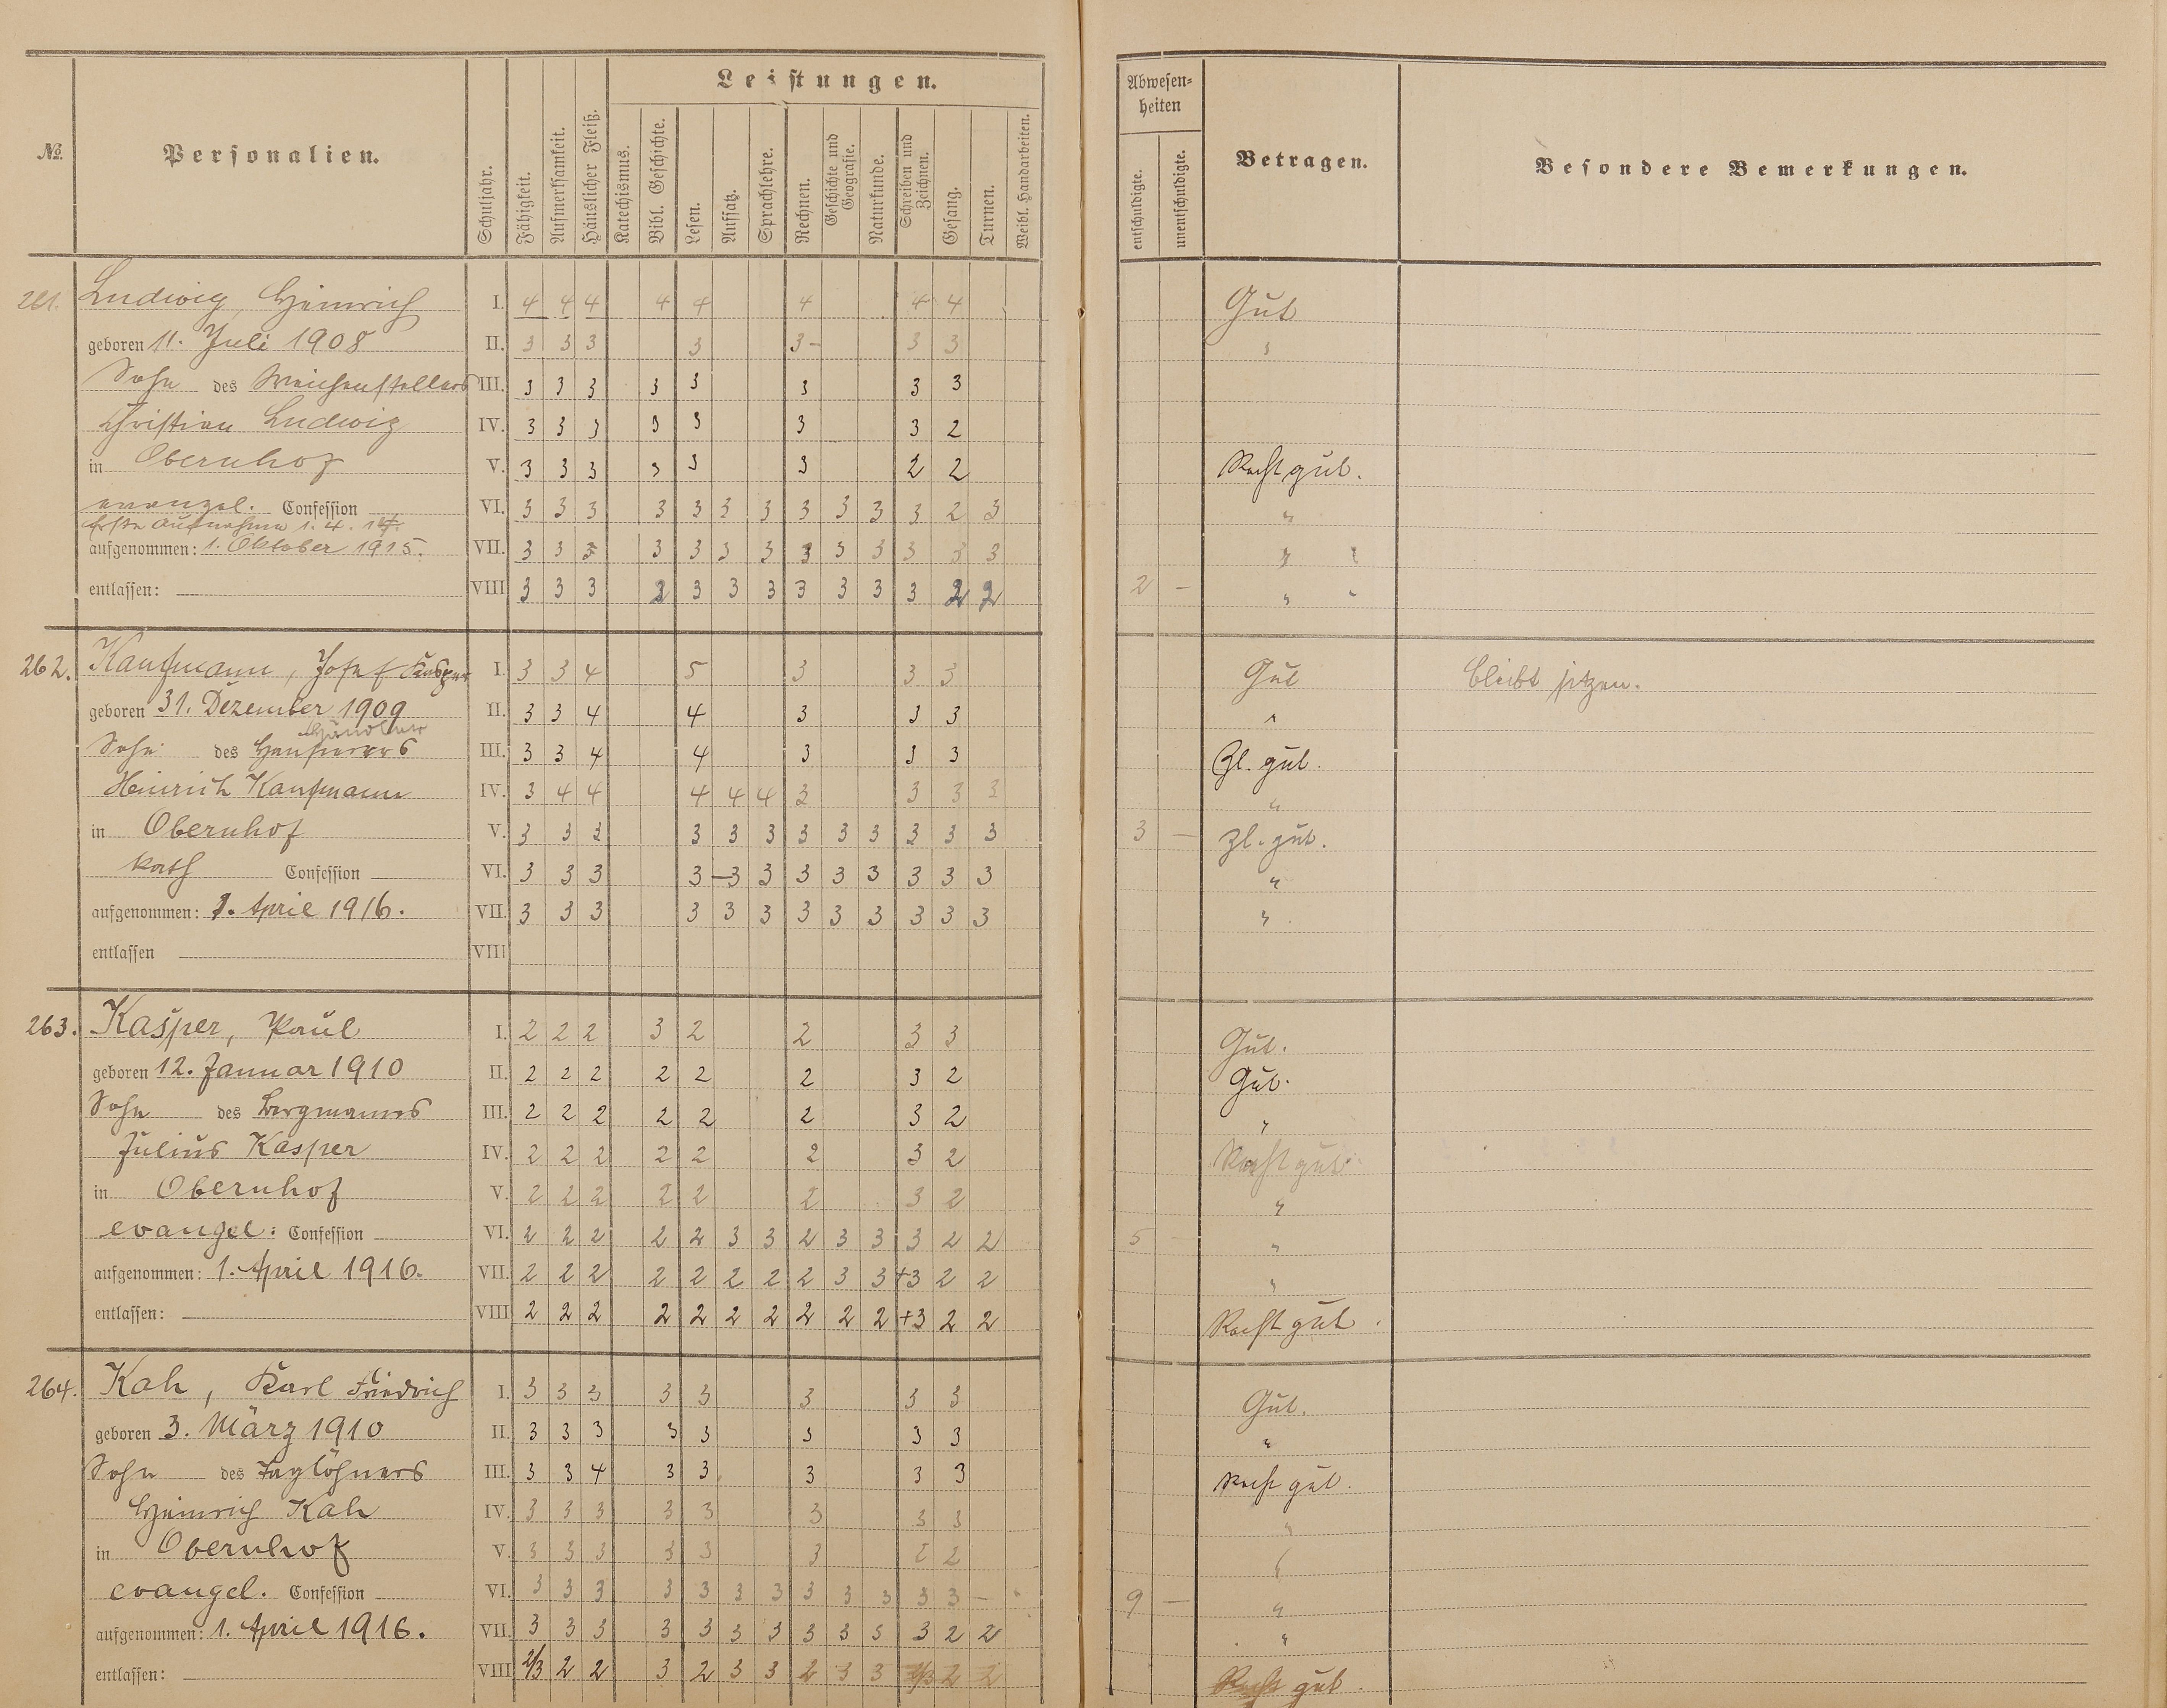 Leistungen.
Abwesen-
heiten
No. Personalien. Schuljahr. Fähigkeit. Aufmerksamkeit. Häuslicher Fleiß. Katechismus. Bibl. Geschichte. Lesen. Aufsatz. Sprachlehre. Rechnen. Geschichte und Geografie. Naturkunde. Schreiben und Zeichnen. Gesang. Turnen. Weibl. Handarbeiten. entschuldigte. unentschuldigte. Betragen. Besondere Bemerkungen.
261. Ludwig, Heinrich I. 4 4 4 4 4 4 4 4 Gut
geboren 11. Juli 1908 II. 3 3 3 3 3- 3 3 "
Sohn des Weichenstellers III. 3 3 3 3 3 3 3 3
Christian Ludwig IV. 3 3 3 3 3 3 3 2
in Obernhof V. 3 3 3 3 3 3 2 2 Recht gut.
evangel. Confession VI. 3 3 3 3 3 3 3 3 3 3 3 2 3 "
Erste Aufnahme 1. 4. 14.
aufgenommen: 1. Oktober 1915. VII. 3 3 3 3 3 3 3 3 3 3 3 3 3 " "
entlassen: VIII 3 3 3 2 3 3 3 3 3 3 3 2 2 2 — " "
262. Kaufmann, Josef Kaspar I. 3 3 4 5 3 3 3 Gut bleibt sitzen.
geboren 31. Dezember 1909 II. 3 3 4 4 3 3 3 "
Händlers
Sohn des Hausierers III. 3 3 4 4 3 3 3 Zl. gut.
Heinrich Kaufmann IV. 3 4 4 4 4 4 3 3 3 3 "
in Obernhof V. 3 3 3 3 3 3 3 3 3 3 3 3 3 — Zl. gut.
kath Confession VI. 3 3 3 3 —3 3 3 3 3 3 3 3 "
aufgenommen: 1. April 1916. VII. 3 3 3 3 3 3 3 3 3 3 3 3 "
entlassen VIII
263. Kasper, Paul I. 2 2 2 3 2 2 3 3 Gut.
geboren 12. Januar 1910 II. 2 2 2 2 2 2 3 2 Gut.
Sohn des Bergmanns III. 2 2 2 2 2 2 3 2 "
Julius Kasper IV. 2 2 2 2 2 2 3 2 Recht gut.
in Obernhof V. 2 2 2 2 2 2 3 2 "
evangel: Confession VI. 2 2 2 2 2 3 3 2 3 3 3 2 2 5 "
aufgenommen: 1. April 1916. VII. 2 2 2 2 2 2 2 2 3 3 +3 2 2 "
entlassen: VIII 2 2 2 2 2 2 2 2 2 2 +3 2 2 Recht gut.
264. Kah, Karl Friedrich I. 3 3 3 3 3 3 3 3 Gut.
geboren 3. März 1910 II. 3 3 3 3 3 3 3 3 "
Sohn des Taglöhners III. 3 3 4 3 3 3 3 3 Recht gut.
Heinrich Kah IV. 3 3 3 3 3 3 3 3 "
in Obernhof V. 3 3 3 3 3 3 2 2 "
evangel. Confession VI. 3 3 3 3 3 3 3 3 3 3 3 3 — 9 — "
aufgenommen: 1. April 1916. VII. 3 3 3 3 3 3 3 3 3 3 3 2 2 "
entlassen: VIII 2/3 2 2 3 2 3 3 2 3 3 2/3 2 2 Recht gut.